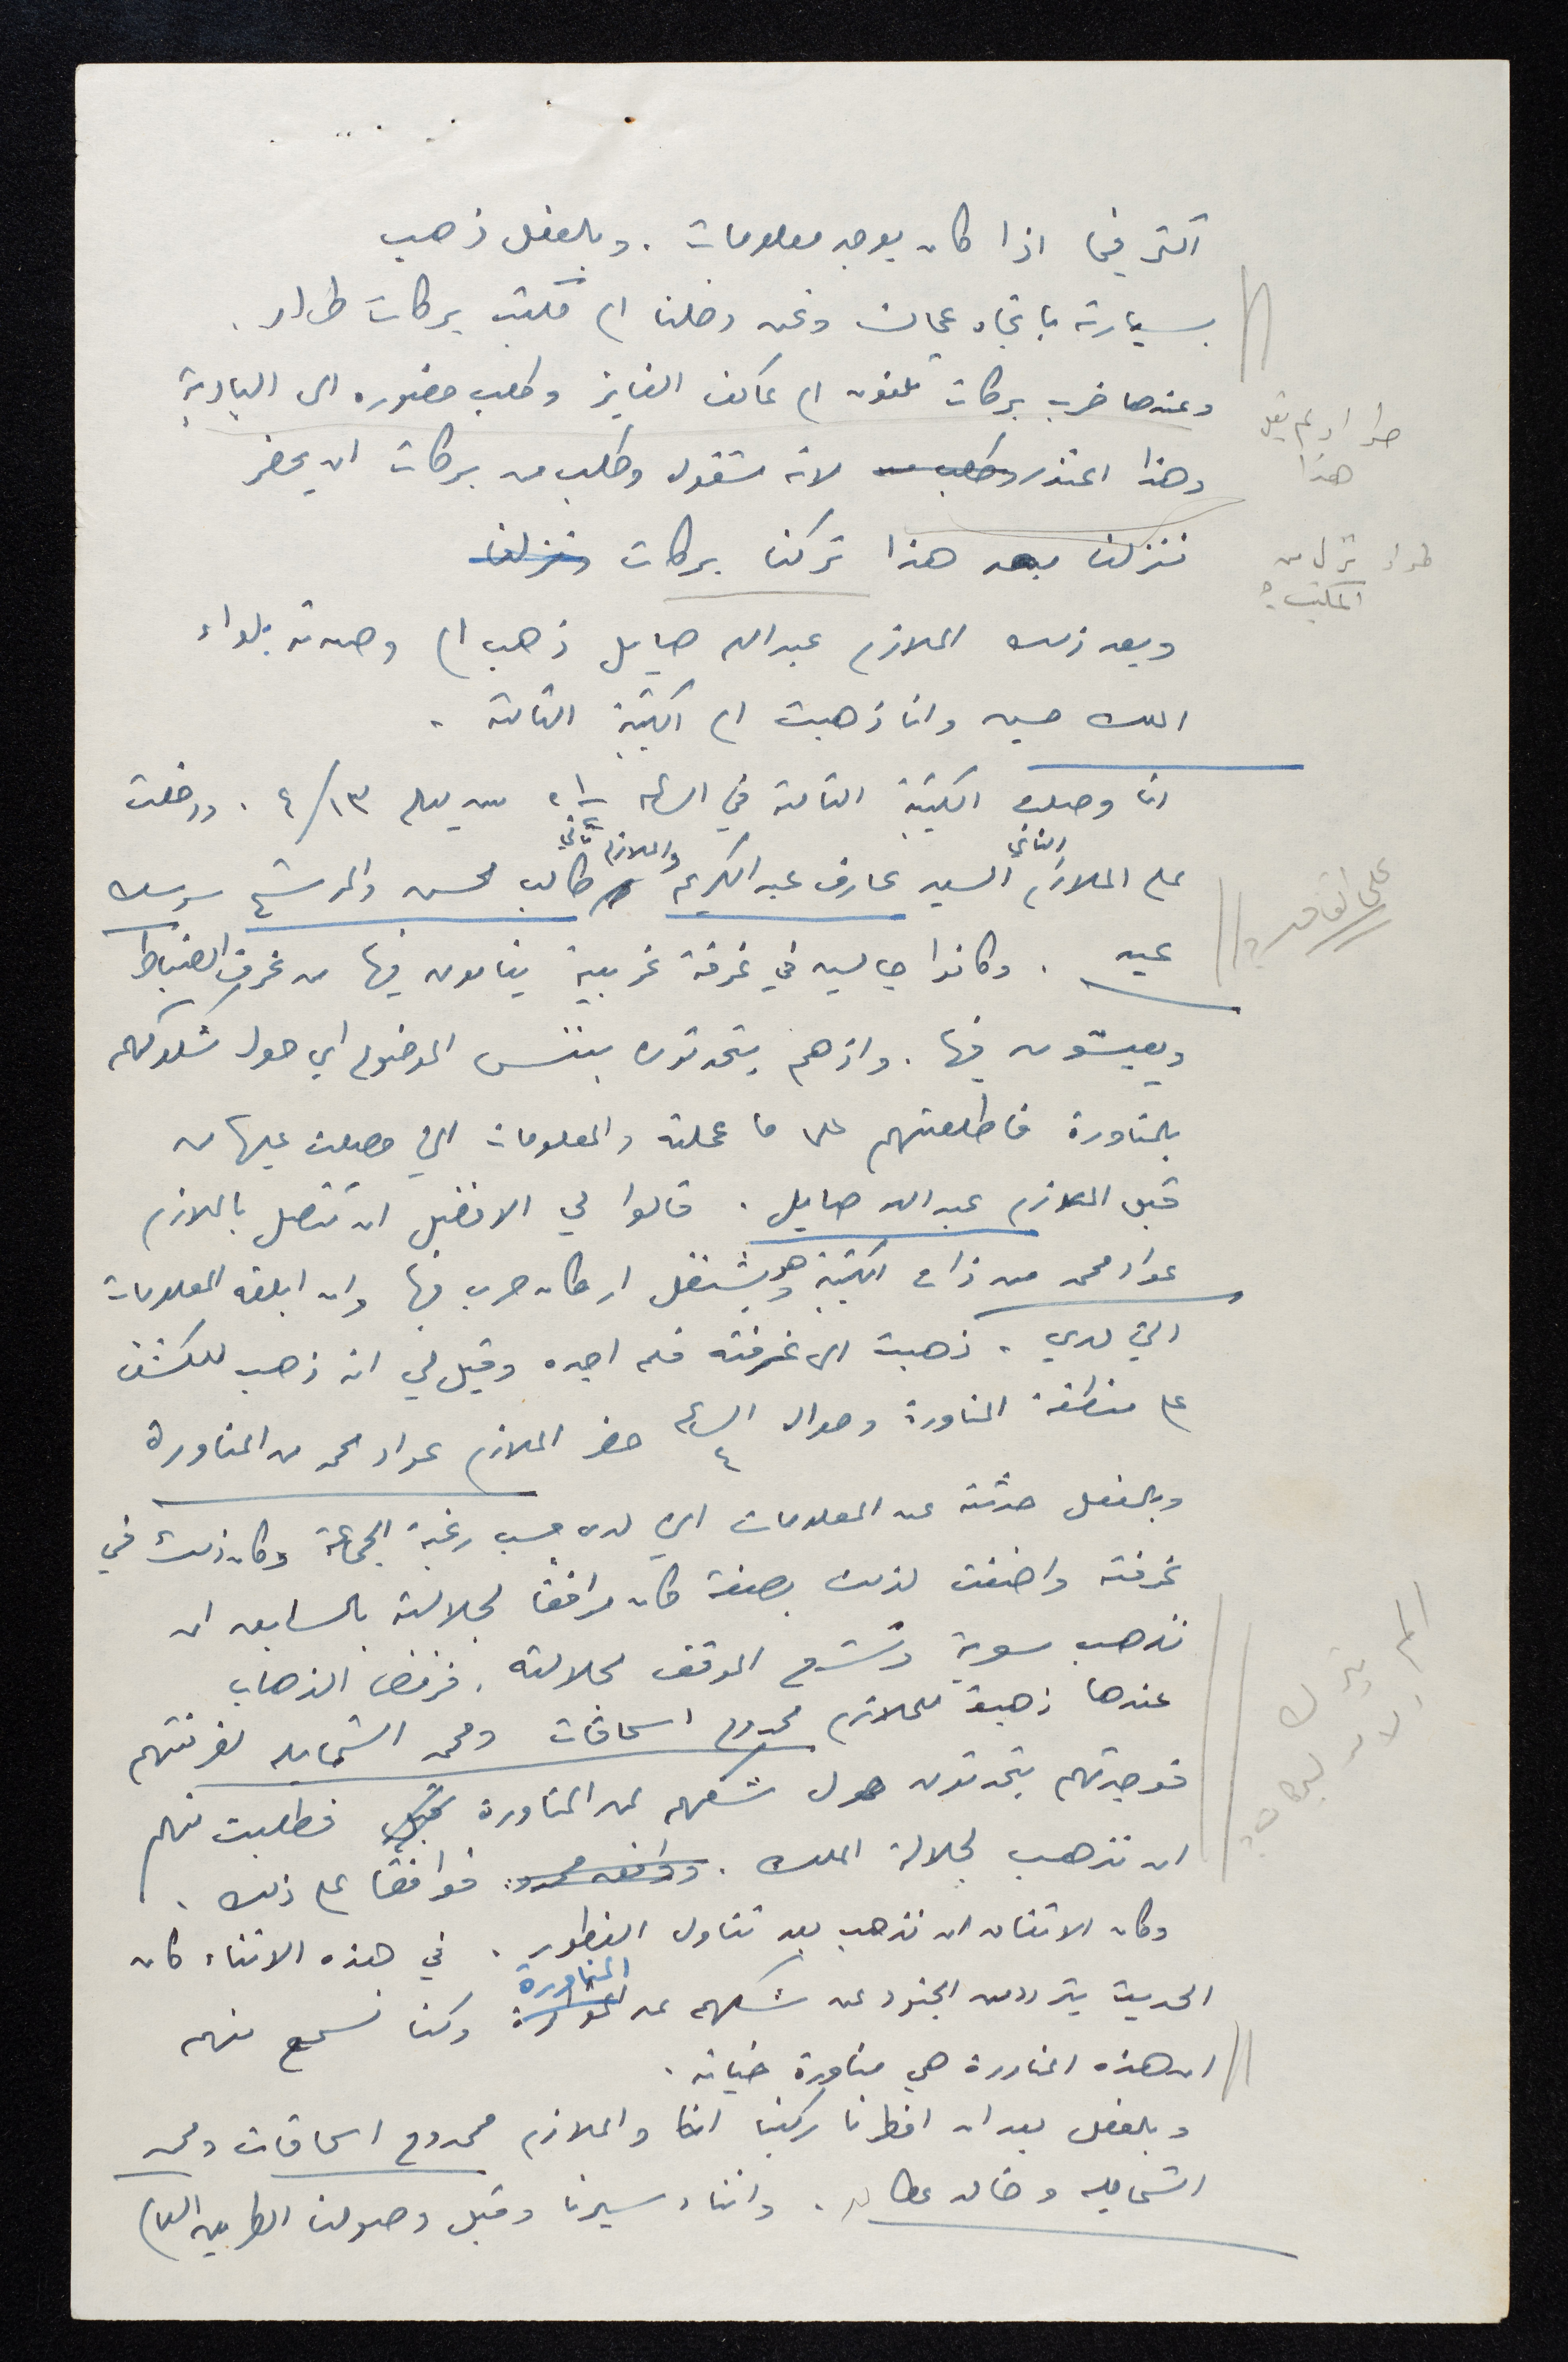 اكثر فيما اذا كان يوجد معلومات . وبالفعل ذهب
بسيارته باتجاه عمان ونحن دخلنا الى مكتب بركات طراد .
وعندها ضرب بركات تلفون الى عاكف الفايز وطلب حضوره الى البادية
طراد لم يقل
هذا
وهذا اعتذر وطلب من لانه مشغول وطلب من بركات ان يحضر
فنزلنا بعد هذا تركنا بركات ونزلنا
طراد نزل من
المكتب ؟
وبعد ذلك الملازم عبدالله صايل ذهب الى وحدته بلواء
الملك حسين وانا ذهبت الى الكتيبة الثالثة .
انا وصلت الكتيبة الثالثة في الساعة من يوم ٤/١٣ . ودخلت
على الملازم الثاني السيد عارف عبد الكريم والملازم ثاني طالب محسن والمرشح
عيد . وكانوا جالسين في غرفة غربية ينامون فيها من غرف الضباط
ويعيشون فيها . واذ هم يتحدثون بنفس الموضوع اي حول شكوكهم
بالمناورة فاطلعتهم على ما عملته والمعلومات التي حصلت عليها من
قبل الملازم عبدالله صايل . قالوا لي الافضل ان تتصل بالملازم
عواد محمد من ذات الكتيبة وهو يشتغل اركان حرب فيها وان ابلغه المعلومات
التي لدي . ذهبت الى غرفته فلم اجده وقيل لي انه ذهب للكشف
على منطقة المناورة وحوالي الساعة ٤ حضر الملازم عواد محمد من المناورة
وبالفعل حدثته عن المعلومات التي لدي حسب رغبة الجماعة وكان ذلك في
غرفته واضفت لذلك بصفته كان مرافقا لجلالته بالسابق ان
نذهب سوية ونشرح الموقف لجلالته . فرفض الذهاب
عندها ذهبت للملازم ممدوح اسحاقات ومحمد الشمايله لغرفتهم
فوجدتهم يتحدثون حول شكهم عن المناورة فطلبت منهم
ان نذهب لجلالة الملك . ووافق ممدوح فوافقا على ذلك .
وكان الاتفاق ان نذهب بعد تناول الفطور . في هذه الاثناء كان
الحديث يتردد من الجنود عن شكهم عن المناورة وكنا نسمع منهم
ان هذه المناورة هي مناورة خيانة .
وبالفعل بعد ان افطرنا ركبنا انا والملازم ممدوح اسحاقات ومحمد
الشمايله وخالد . واثناء سيرنا وقبل وصولنا الطريق العام